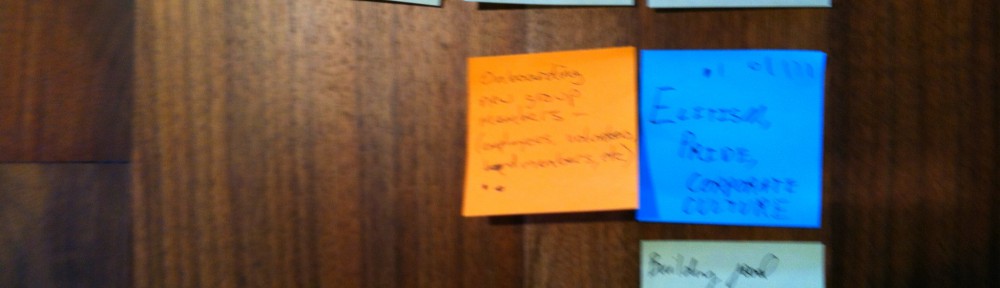 Onboarding
new group
members –
(employees, volunteers,
board members, etc)
Elitism,
Pride,
Corporate
Culture
Building